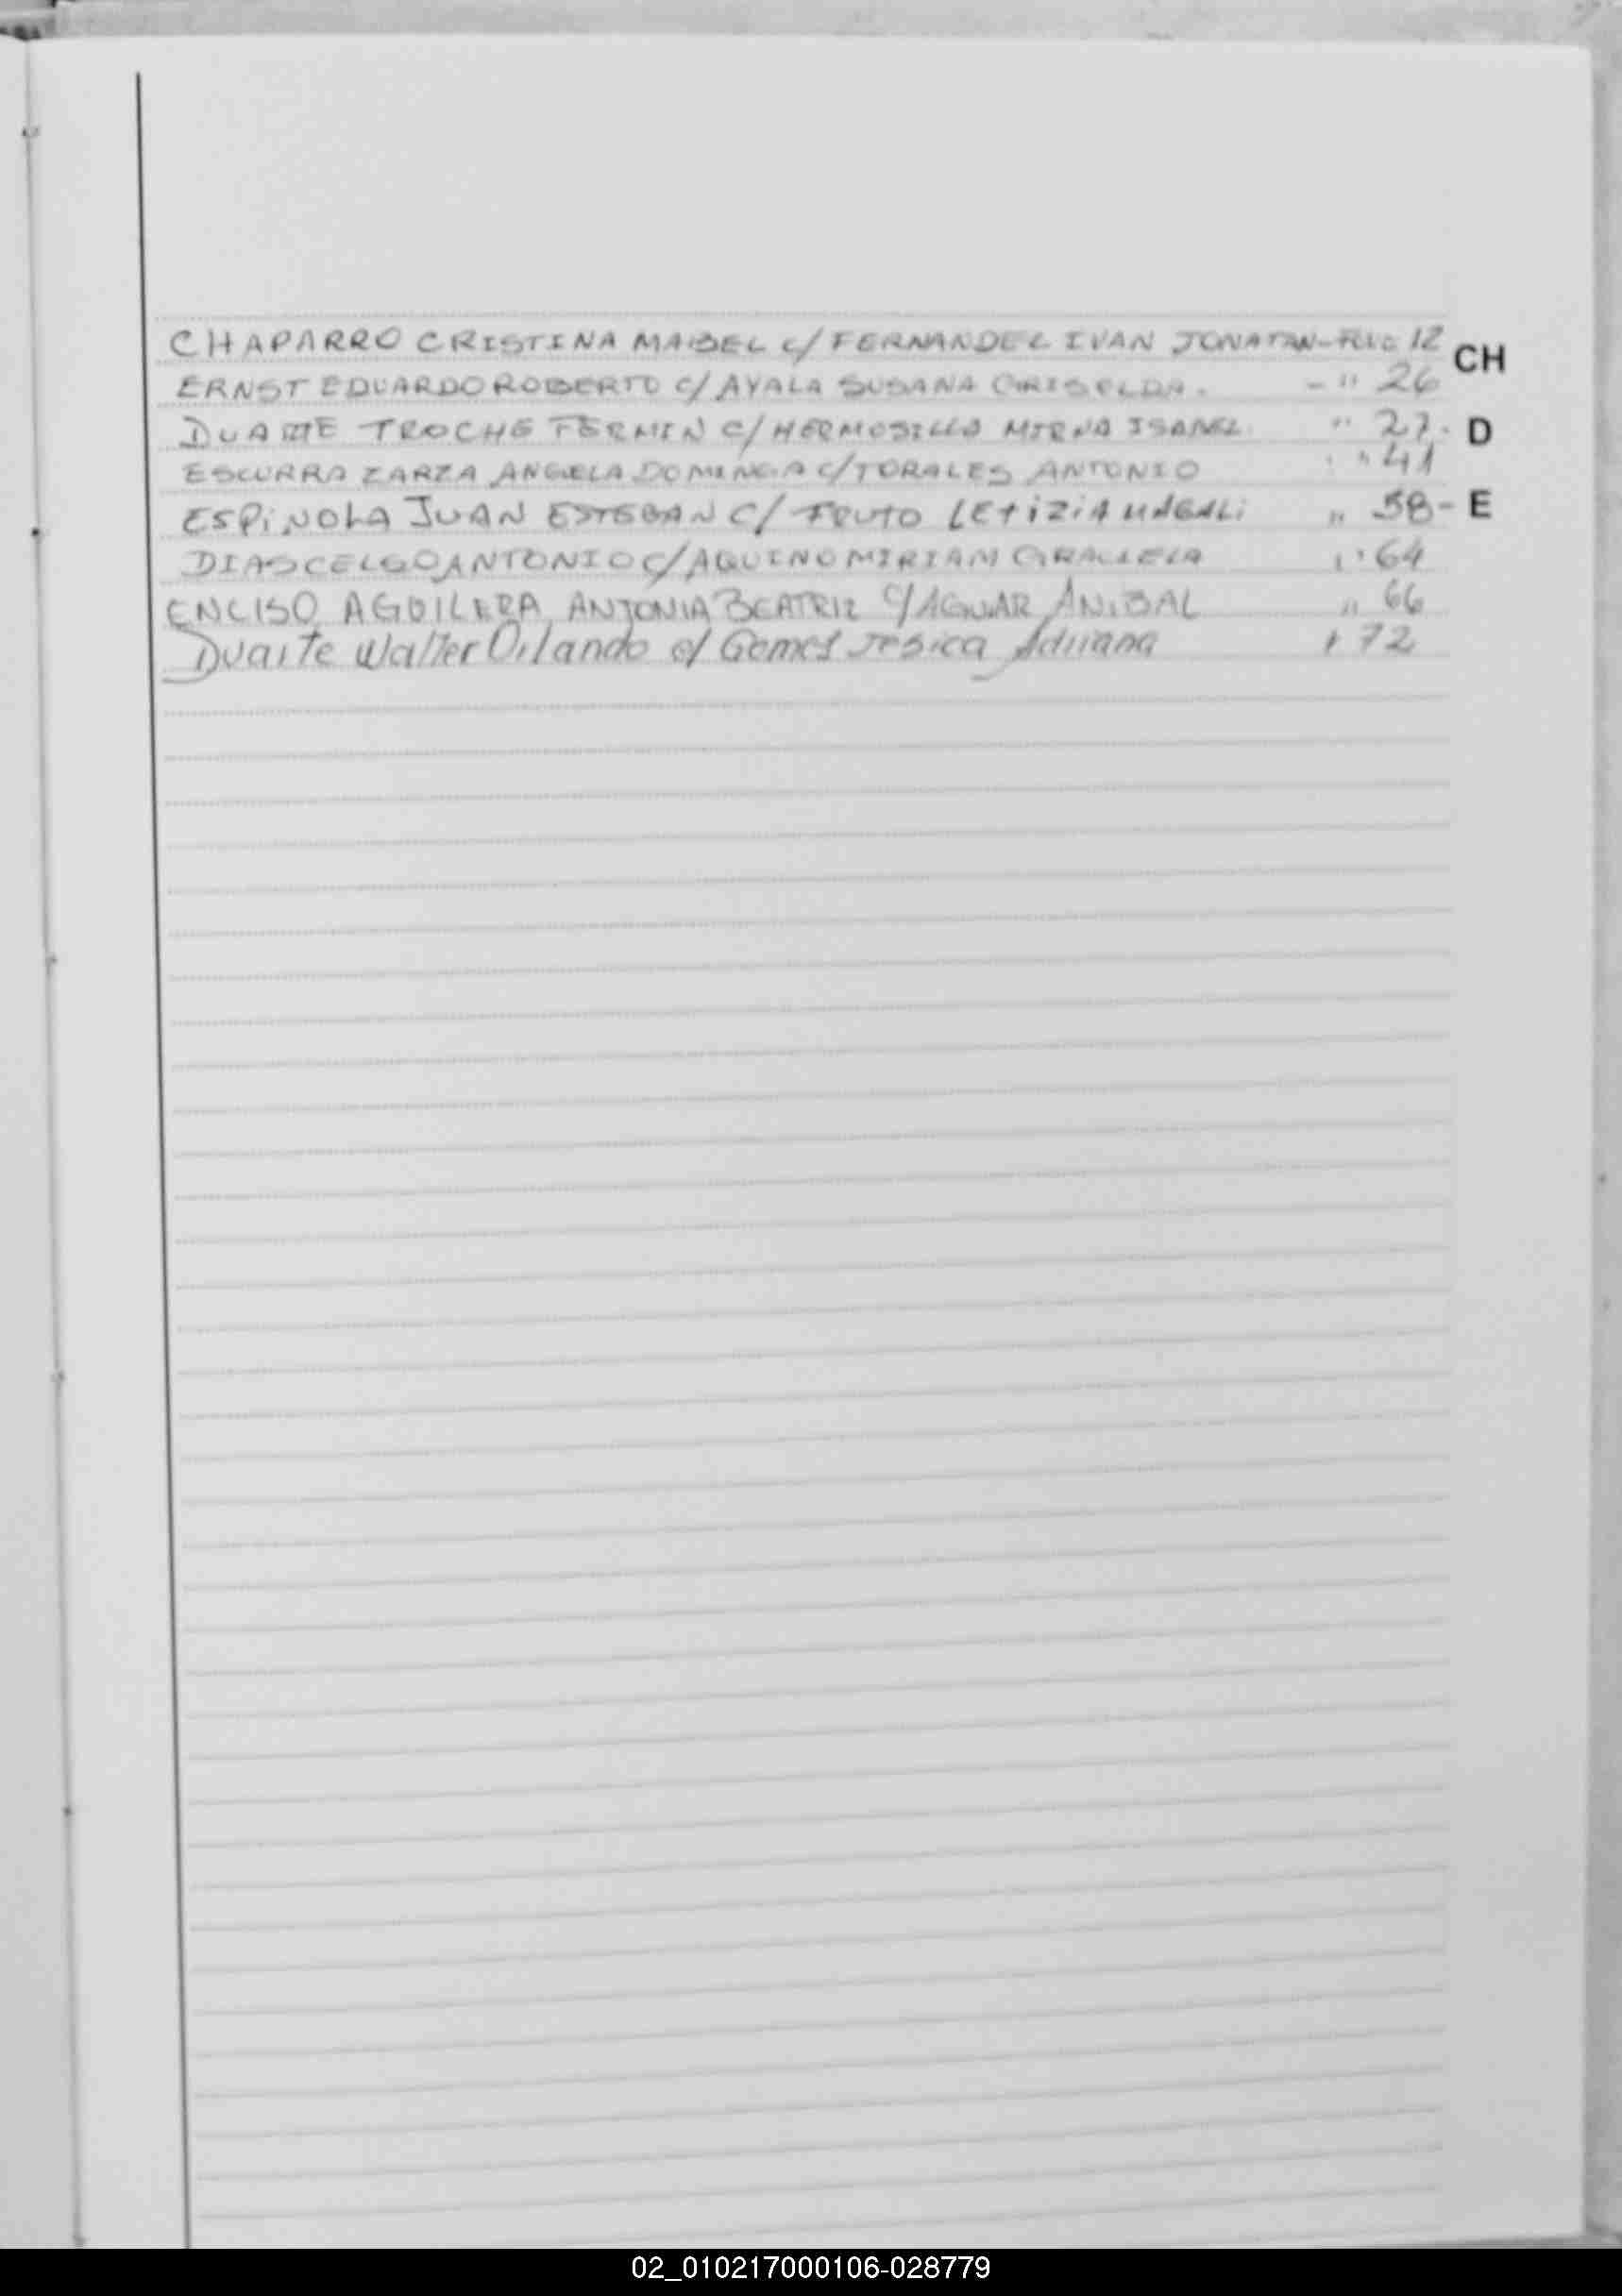 CHAPARRO CRISTINA MABEL c/ FERNANDEZ IVAN JONATAN - FOLIO 12
CH
ERNST EDUARDO ROBERTO c/ AYALA SUSANA GRISELDA. - " 26
DUARTE TROCHE FERMIN c/ HERMOSILLA MIRNA ISABEL " 27.
D
ESCURRA ZARZA ANGELA DOMINGA c/ TORALES ANTONIO " 41
ESPiNOLA JUAN ESTEBAN C/ FRUTO LETiZiA MAGALi " 58-
E
DIAS CELSO ANTONIO c/ AQUINO MIRIAM GRACIELA " 64
ENCISO AGUILERA ANTONIA BEATRIZ c/ AGUIAR ANiBAL " 66
Duarte Walter Orlando c/ Gomes Jesica Adriana " 72
02_010217000106-028779